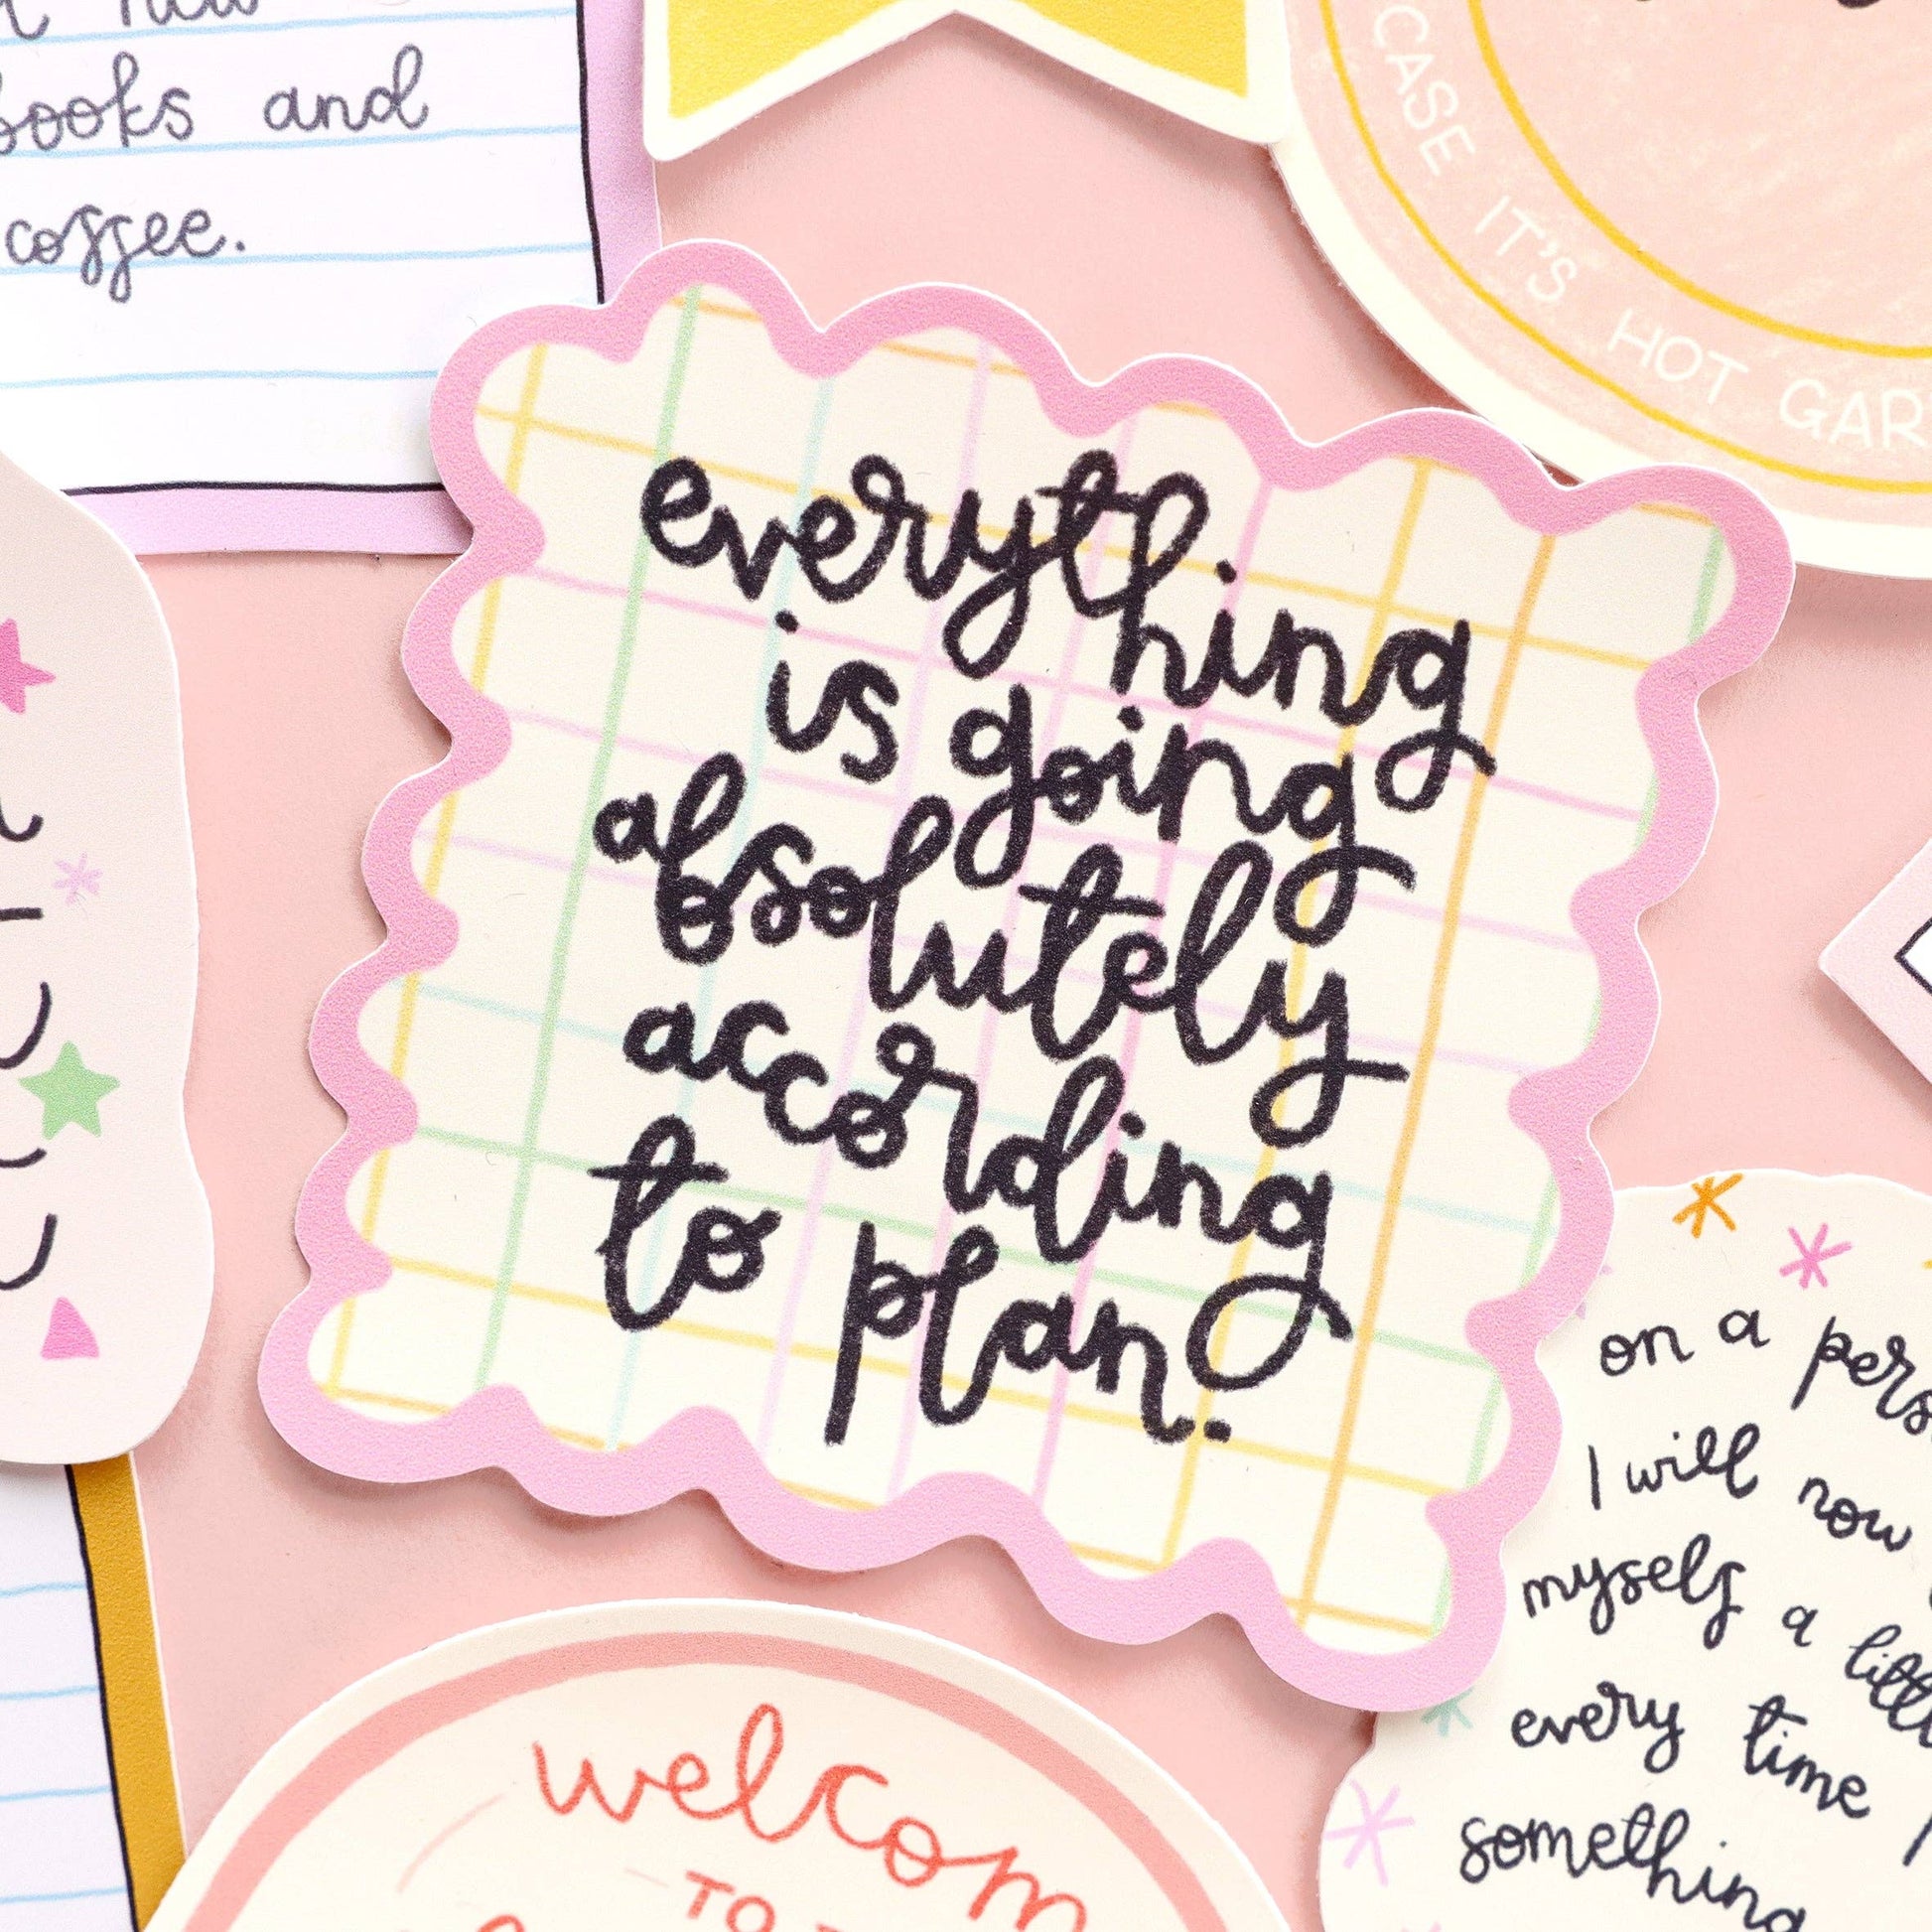 books and
coffee.
CASE IT'S HOT
everything
is going
absolutely
according
to plan.
on a
I will now
myself a
every time
something
TO